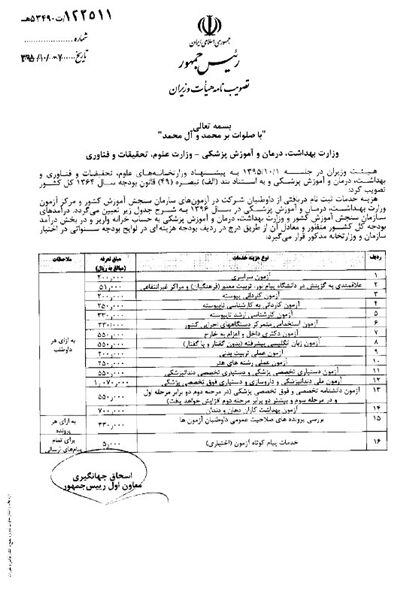 ۱۲۲۵۱۱/ت۵۳۴۹۰هـ
شماره
۱۳۹۵/۱۰/۰۷
تاریخ
جمهوری اسلامی ایران
رئیس جمهور
تصویب نامه هیأت وزیران
بسمه تعالی
"با صلوات بر محمد و آل محمد"
وزارت بهداشت، درمان و آموزش پزشکی – وزارت علوم، تحقیقات و فناوری
هیئت وزیران در جلسه ۱۳۹۵/۱۰/۱ به پیشنهاد وزارتخانه‌های علوم، تحقیقات و فناوری و
بهداشت، درمان و آموزش پزشکی و به استناد بند (الف) تبصره (۴۹) قانون بودجه سال ۱۳۶۴ کل کشور
تصویب کرد:
هزینه خدمات ثبت نام دریافتی از داوطلبان شرکت در آزمون‌های سازمان سنجش آموزش کشور و مرکز آزمون
وزارت بهداشت، درمان و آموزش پزشکی در سال ۱۳۹۶ به شرح جدول زیر تعیین می‌گردد. درآمدهای
سازمان سنجش آموزش کشور و وزارت بهداشت، درمان و آموزش پزشکی به حساب خزانه واریز و در بخش درآمد
بودجه کل کشور منظور و معادل آن از طریق درج در ردیف بودجه هزینه‌ای در لوایح بودجه سنواتی در اختیار
سازمان و وزارتخانه مذکور قرار می‌گیرد:
ردیف نوع هزینه خدمات مبلغ تعرفه (مبالغ به ریال) ملاحظات
۱ آزمون سراسری ۲۰۰,۰۰۰
۲ علاقمندی به گزینش در دانشگاه پیام نور، تربیت معلم (فرهنگیان) و مراکز غیرانتفاعی ۵۱,۰۰۰
۳ آزمون کاردانی پیوسته ۲۰۰,۰۰۰
۴ آزمون کاردانی به کارشناسی ناپیوسته ۲۵۰,۰۰۰
۵ آزمون کارشناسی ارشد ناپیوسته ۳۳۰,۰۰۰
۶ آزمون استخدامی متمرکز دستگاههای اجرایی کشور
۷ آزمون دکتری داخل و اعزام به خارج ۵۵۰,۰۰۰
۸ آزمون زبان انگلیسی پیشرفته (بدون گفتار و با گفتار) ۵۵۰,۰۰۰
به ازای هر
داوطلب
۹ آزمون عملی تربیت بدنی ۲۰۰,۰۰۰
۱۰ آزمون عملی رشته های هنر ۲۵۰,۰۰۰
۱۱ آزمون دستیاری تخصصی پزشکی و دستیاری تخصصی دندانپزشکی ۵۵۰,۰۰۰
۱۲ آزمون ملی دندانپزشکی و داروسازی و دستیاری فوق تخصصی پزشکی ۱,۰۷۰,۰۰۰
۱۳ آزمون دانشنامه تخصصی و فوق تخصصی پزشکی (در مرحله دوم دو برابر مرحله اول
و در مرحله سوم و بیشتر دو برابر مرحله دوم افزایش خواهد یافت) ۵۵۰,۰۰۰
۱۴ آزمون بهداشت کاران دهان و دندان ۷۰۰,۰۰۰
۱۵ بررسی پرونده های صلاحیت عمومی داوطلبان آزمون ها ۳۳۰,۰۰۰ به ازای هر پرونده
۱۶ خدمات پیام کوتاه آزمون (اختیاری) ۵,۰۰۰ برای تمام پیام‌های ارسالی
اسحاق جهانگیری
معاون اول رییس‌جمهور